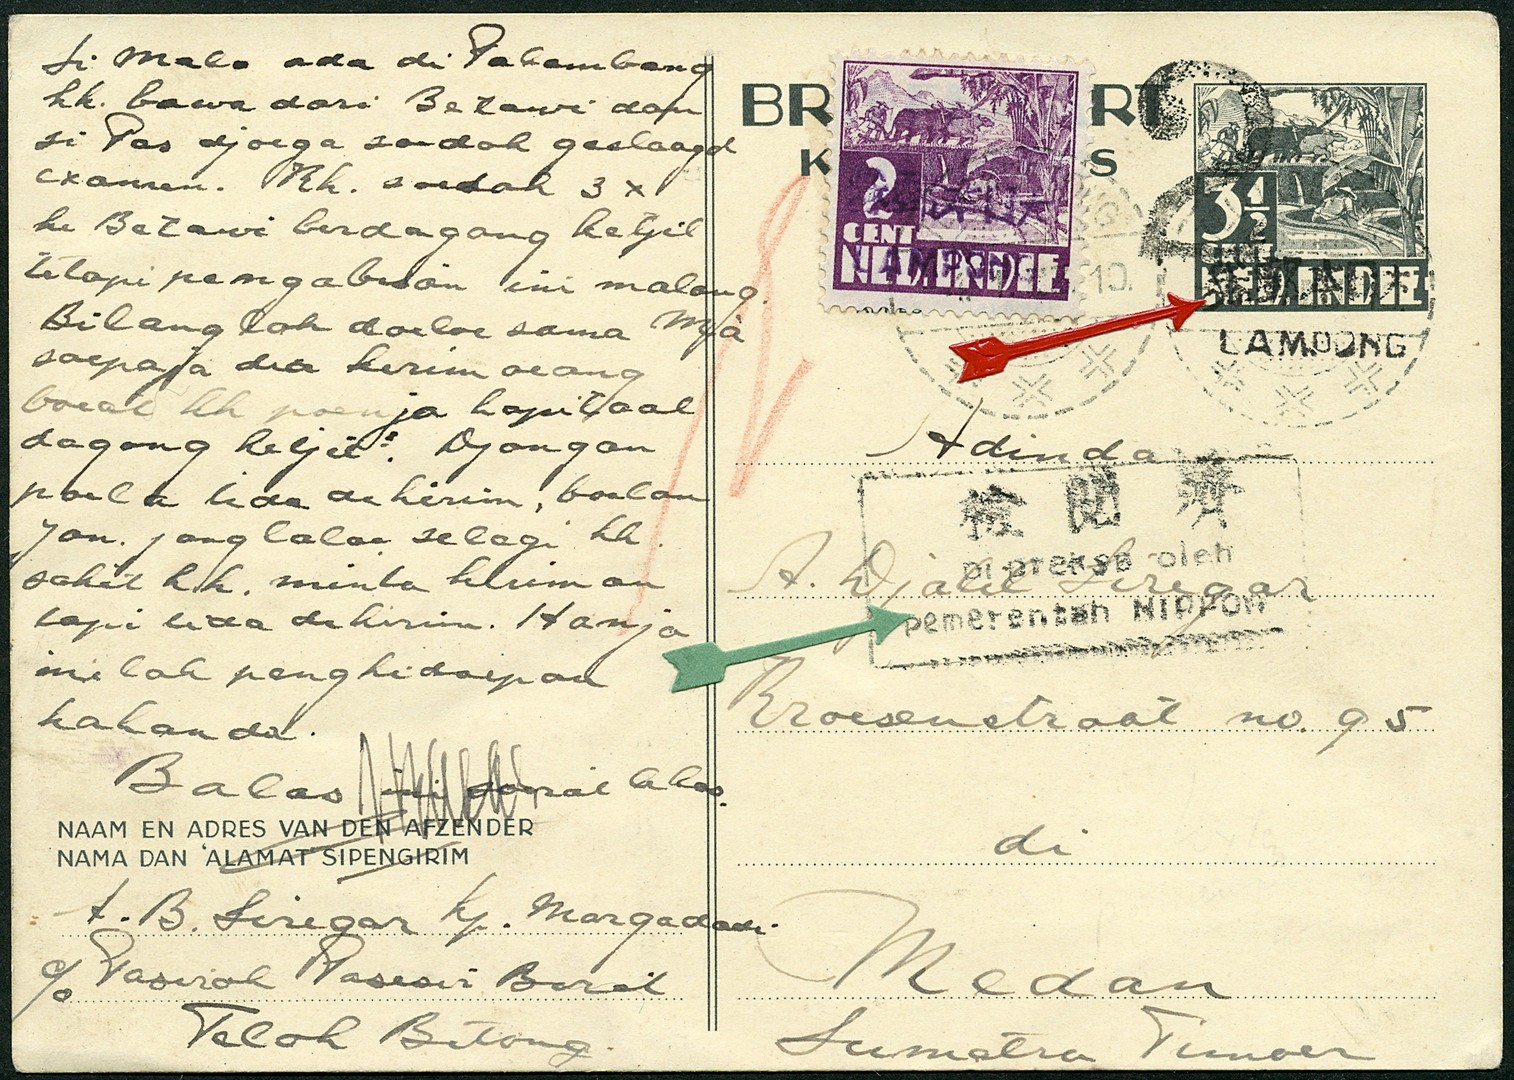 Si Mala ada di Palembang
kk. bawa dari Betawi dan
si Pas djoega soedah geslaagd
examen. Kk. soedah 3 x
ke Betawi berdagang ketjil
tetapi pengabisan ini malang.
Bilanglah doeloe sama
soepaja dia kirim oeang
boeat kk poenja kapitaal
dagang ketjil. Djangan
poela tida dikirim, boelan
Jan. jang laloe selagi kk.
sakit kk. minta kiriman
tapi tida dikirim. Hanja
inilah penghidoepan
kakanda.
Balas ini soerat lekas.
NAAM EN ADRES VAN DEN AFZENDER
NAMA DAN 'ALAMAT SIPENGIRIM
A. B. Siregar kp. Margadadi
c/o Pasirah
Telok Betong.
2
CENT
NED. INDIE
LAMPONG
10.
3 1/2
CENT
NED. INDIE
LAMPONG
Adinda
検閲済
Di preksa oleh
pemerentah NIPPON
A. Djalil Siregar
Kroesenstraat no. 95
di
Medan
Sumatra Timoer